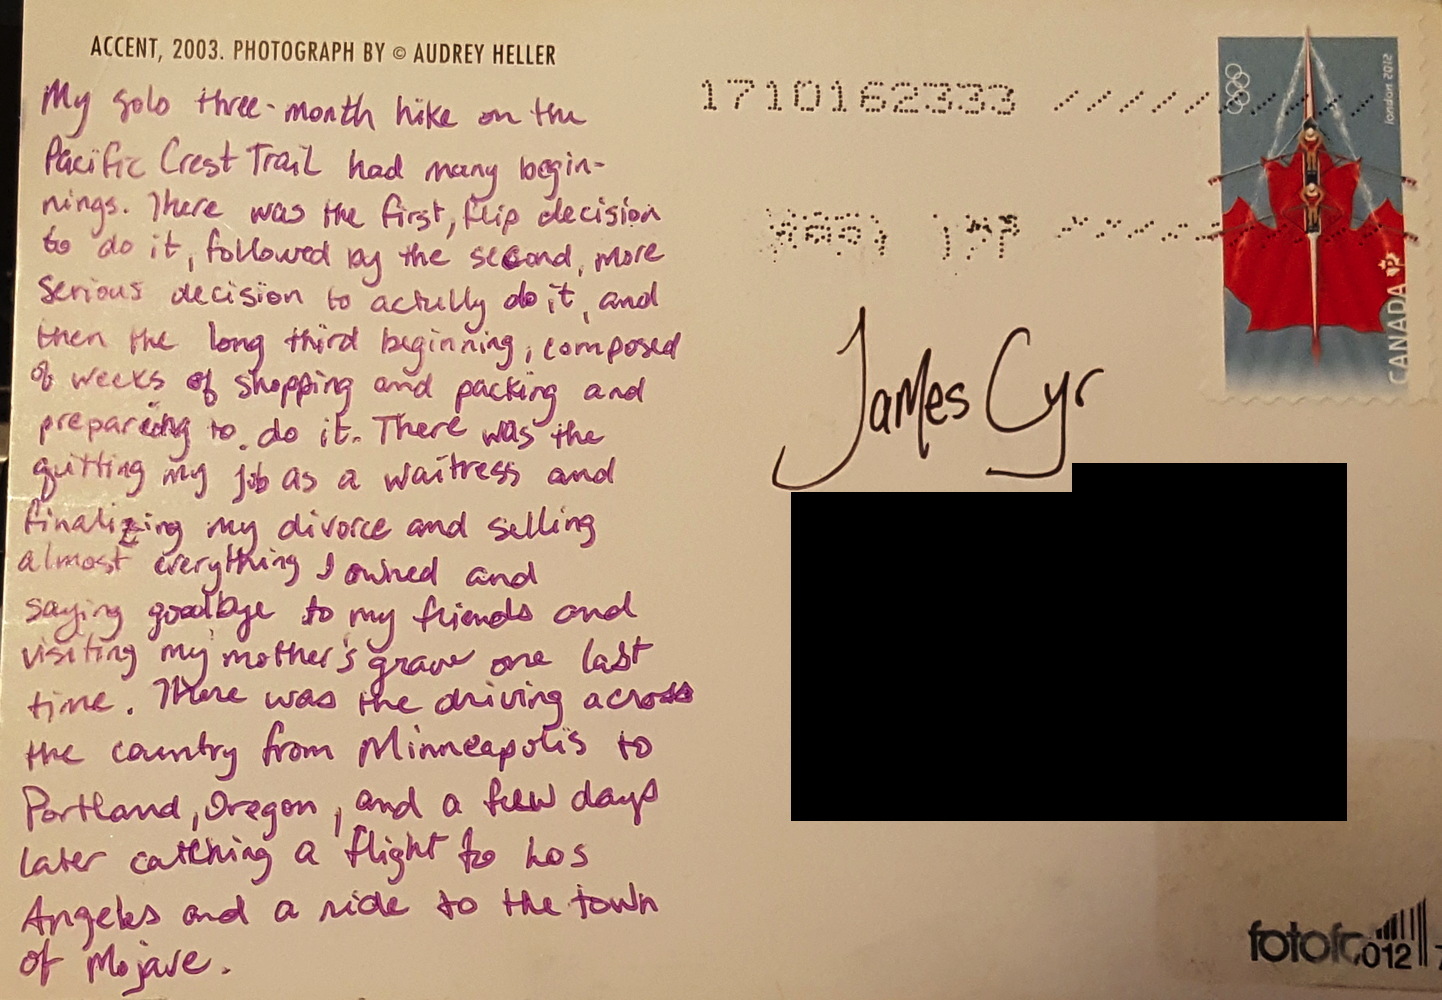 ACCENT, 2003. PHOTOGRAPH BY © AUDREY HELLER
My solo three-month hike on the
Pacific Crest Trail had many begin-
nings. There was the first, flip decision
to do it, followed by the second, more
serious decision to actully do it, and
then the long third beginning, composed
of weeks of shopping and packing and
preparing to do it. There was the
quitting my job as a waitress and
finalizing my divorce and selling
almost everything I owned and
saying goodbye to my friends and
visiting my mother's grave one last
time. There was the driving across
the country from Minneapolis to
Portland, Oregon, and a few days
later catching a flight to Los
Angeles and a ride to the town
of Mojave.
1710162333
london 2012
CANADA P
James Cyr
012